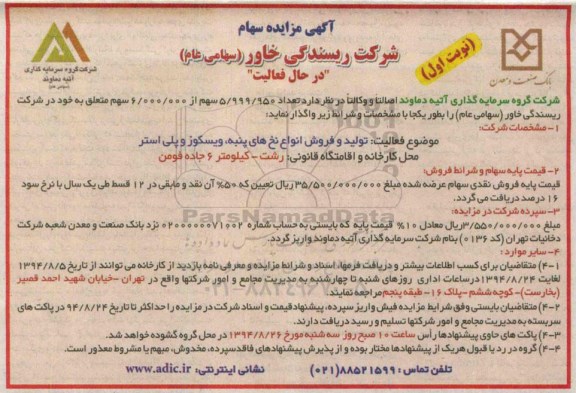 آگهی مزایده سهام
شرکت ریسندگی خاور (سهامی عام)
"در حال فعالیت"
(نوبت اول)
شرکت گروه سرمایه گذاری
آتیه دماوند
(سهامی عام)
بانک صنعت و معدن
شرکت گروه سرمایه گذاری آتیه دماوند اصالتاً و وکالتاً در نظر دارد تعداد ۵/۹۹۹/۹۵۰ سهم از ۶/۰۰۰/۰۰۰ سهم متعلق به خود در شرکت
ریسندگی خاور (سهامی عام) را بطور یکجا با مشخصات و شرایط زیر واگذار نماید:
۱- مشخصات شرکت:
موضوع فعالیت: تولید و فروش انواع نخ های پنبه، ویسکوز و پلی استر
محل کارخانه و اقامتگاه قانونی: رشت - کیلومتر ۶ جاده فومن
۲- قیمت پایه سهام و شرایط فروش:
قیمت پایه فروش نقدی سهام عرضه شده مبلغ ۳۵/۵۰۰/۰۰۰/۰۰۰ ریال تعیین که ۵۰% آن نقد و مابقی در ۱۲ قسط طی یک سال با نرخ سود
۱۶ درصد دریافت می گردد.
۳- سپرده شرکت در مزایده:
مبلغ ۳/۵۵۰/۰۰۰/۰۰۰ ریال معادل ۱۰% قیمت پایه که بایستی به حساب شماره ۰۲۰۰۰۰۰۰۷۱۰۰۲ نزد بانک صنعت و معدن شعبه شرکت
دخانیات تهران (کد ۰۱۳۶) بنام شرکت سرمایه گذاری آتیه دماوند واریز گردد.
۴- سایر موارد:
۴-۱) متقاضیان برای کسب اطلاعات بیشتر و دریافت فرمها، اسناد و شرایط مزایده و معرفی نامه بازدید از کارخانه می توانند از تاریخ ۱۳۹۴/۸/۵
لغایت ۱۳۹۴/۸/۲۴ در ساعات اداری روزهای شنبه تا چهارشنبه به مدیریت مجامع و امور شرکتها واقع در تهران - خیابان شهید احمد قصیر
(بخارست) - کوچه ششم - پلاک ۱۶ - طبقه پنجم مراجعه نمایند.
۴-۲) متقاضیان بایستی وفق شرایط مزایده فیش واریز سپرده، پیشنهاد قیمت و اسناد شرکت در مزایده را حداکثر تا تاریخ ۹۴/۸/۲۴ در پاکت های
سربسته به مدیریت مجامع و امور شرکتها تسلیم و رسید دریافت دارند.
۴-۳) پاکت های حاوی پیشنهادها رأس ساعت ۱۰ صبح روز سه شنبه مورخ ۱۳۹۴/۸/۲۶ در محل گروه گشوده خواهد شد.
۴-۴) گروه در رد یا قبول هریک از پیشنهادها مختار بوده و از پذیرش پیشنهادهای فاقد سپرده، مخدوش، مبهم یا مشروط معذور است.
تلفن تماس: ۸۸۵۲۱۵۹۹(۰۲۱) نشانی اینترنتی: www.adic.ir
ParsNamadData